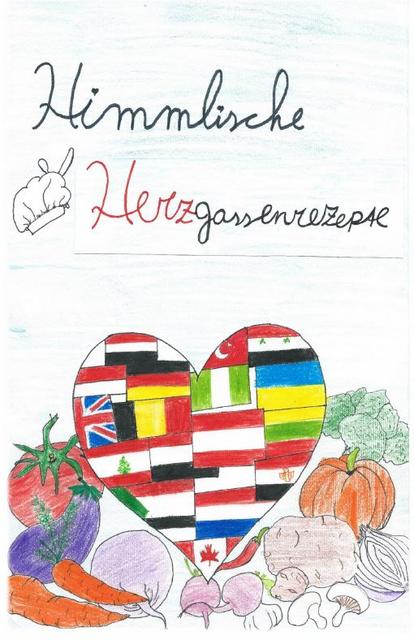 Himmlische
Herzgassenrezepte